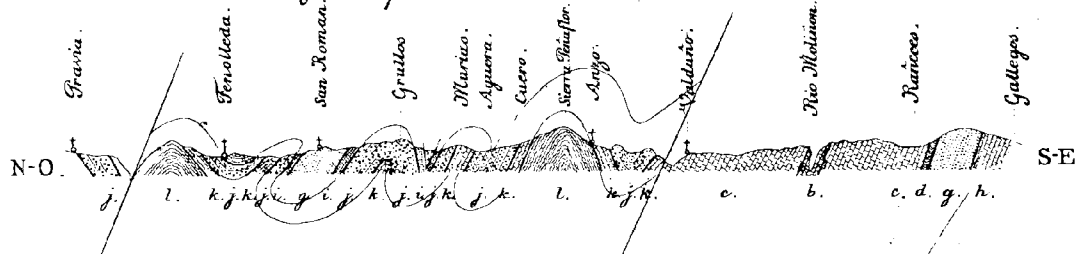 Pravia.
Fenolleda.
San Roman.
Grullos
Murias.
Aguera.
Cuero.
Sierra Peñaflor.
Anzo.
Valduño.
Rio Moliñon.
Rañeces.
Gallegos.
N-O.
S-E
j. l. k. j. k. j. i. g. i. j. k. j. i. j. k. j. k. l. k. j. k. c. b. c. d. g. h.